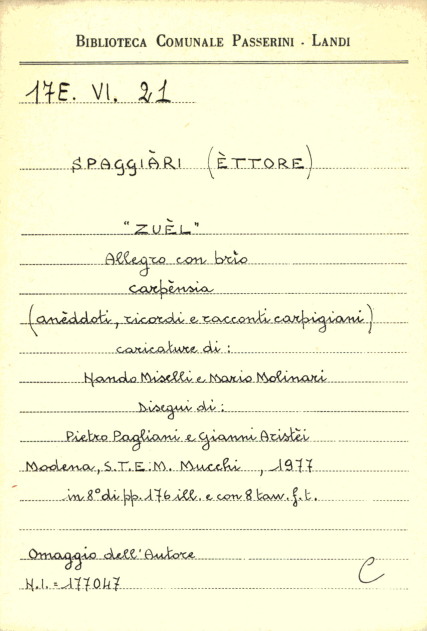 BIBLIOTECA COMUNALE PASSERINI - LANDI
17E. VI. 21
SPAGGIÀRI (ÈTTORE)
"ZUÈL"
Allegro con brìo
carpènsia
(anèddoti, ricordi e racconti carpigiani)
caricature di:
Nando Miselli e Mario Molinari
Disegui di:
Pietro Pagliani e Gianni Aristèi
Modena, S.T.E.M. Mucchi, 1977
in 8° di pp. 176 ill. e con 8 tav. f.t.
Omaggio dell'Autore
N.I. = 177047
C